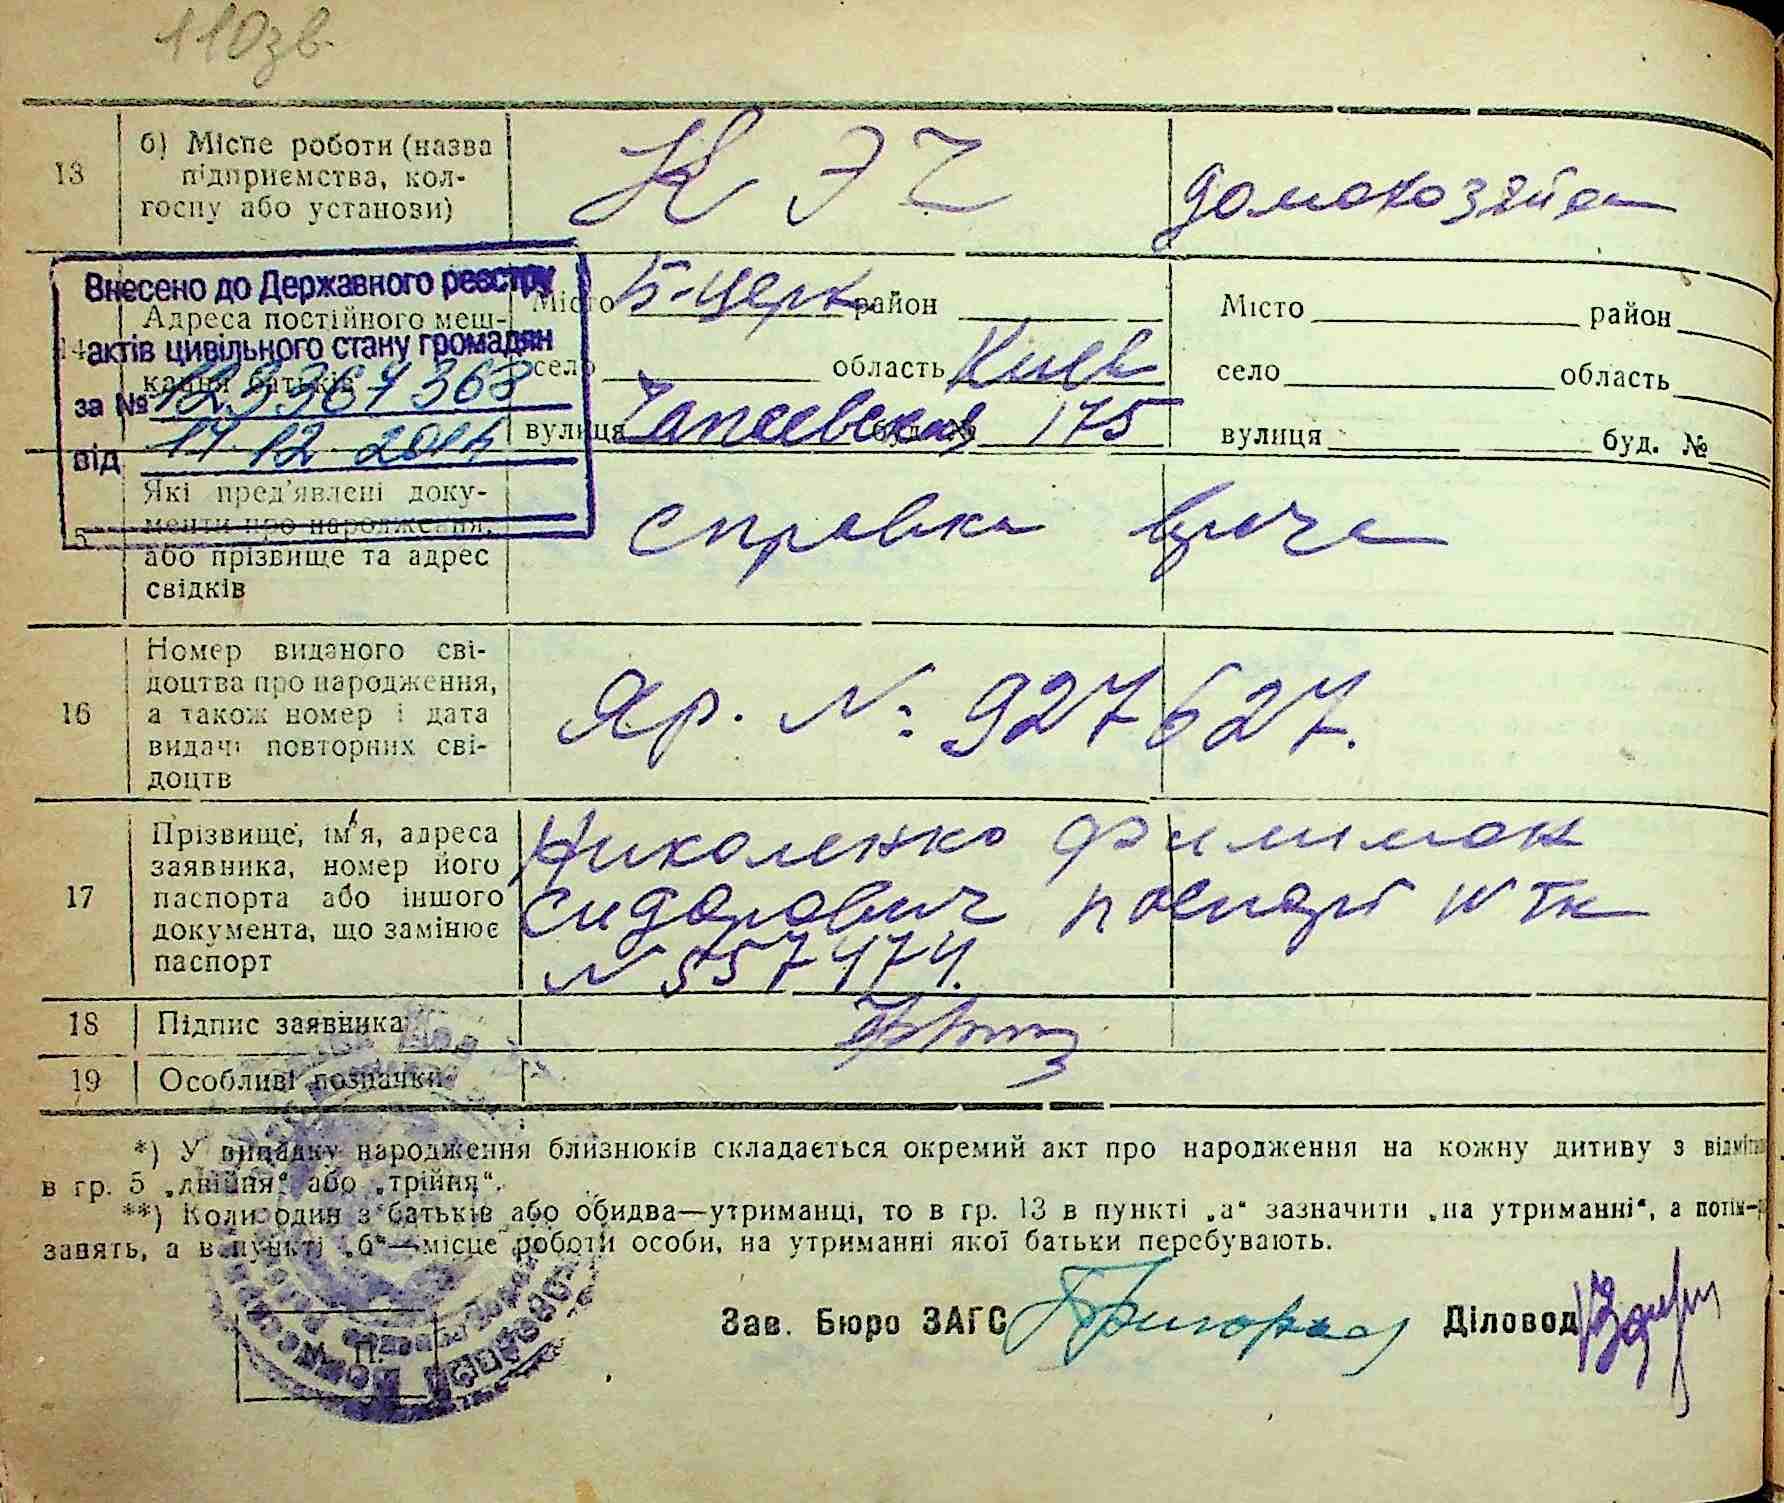 110зв.
13 б) Місце роботи (назва підприємства, колгоспу або установи) КЭЧ домохозяйка
Внесено до Державного реєстру
актів цивільного стану громадян
за № 123367368
від 17 12 2014
14 Адреса постійного мешкання батьків
Місто Б-церк район
село область Киев
вулиця Чапаевская буд. № 175
Місто район
село область
вулиця буд. №
Які пред'явлені доку-
менти про народження,
або прізвище та адрес
свідків
справка врача
16 Номер виданого сві-
доцтва про народження,
а також номер і дата
видачі повторних сві-
доцтв
Яр. №: 927627.
17 Прізвище, ім'я, адреса
заявника, номер його
паспорта або іншого
документа, що замінює
паспорт
Николенко Филимон
Сидорович паспорт IV ТК
N 557474.
18 Підпис заявника
19 Особливі позначки
*) У випадку народження близнюків складається окремий акт про народження на кожну дитину з
в гр. 5 „двійня“ або „трійня“.
**) Коли один з батьків або обидва—утриманці, то в гр. 13 в пункті „а“ зазначити „на утриманні“, а потім
занять, а в пункті „б“—місце роботи особи, на утриманні якої батьки перебувають.
Зав. Бюро ЗАГС Діловод
П.